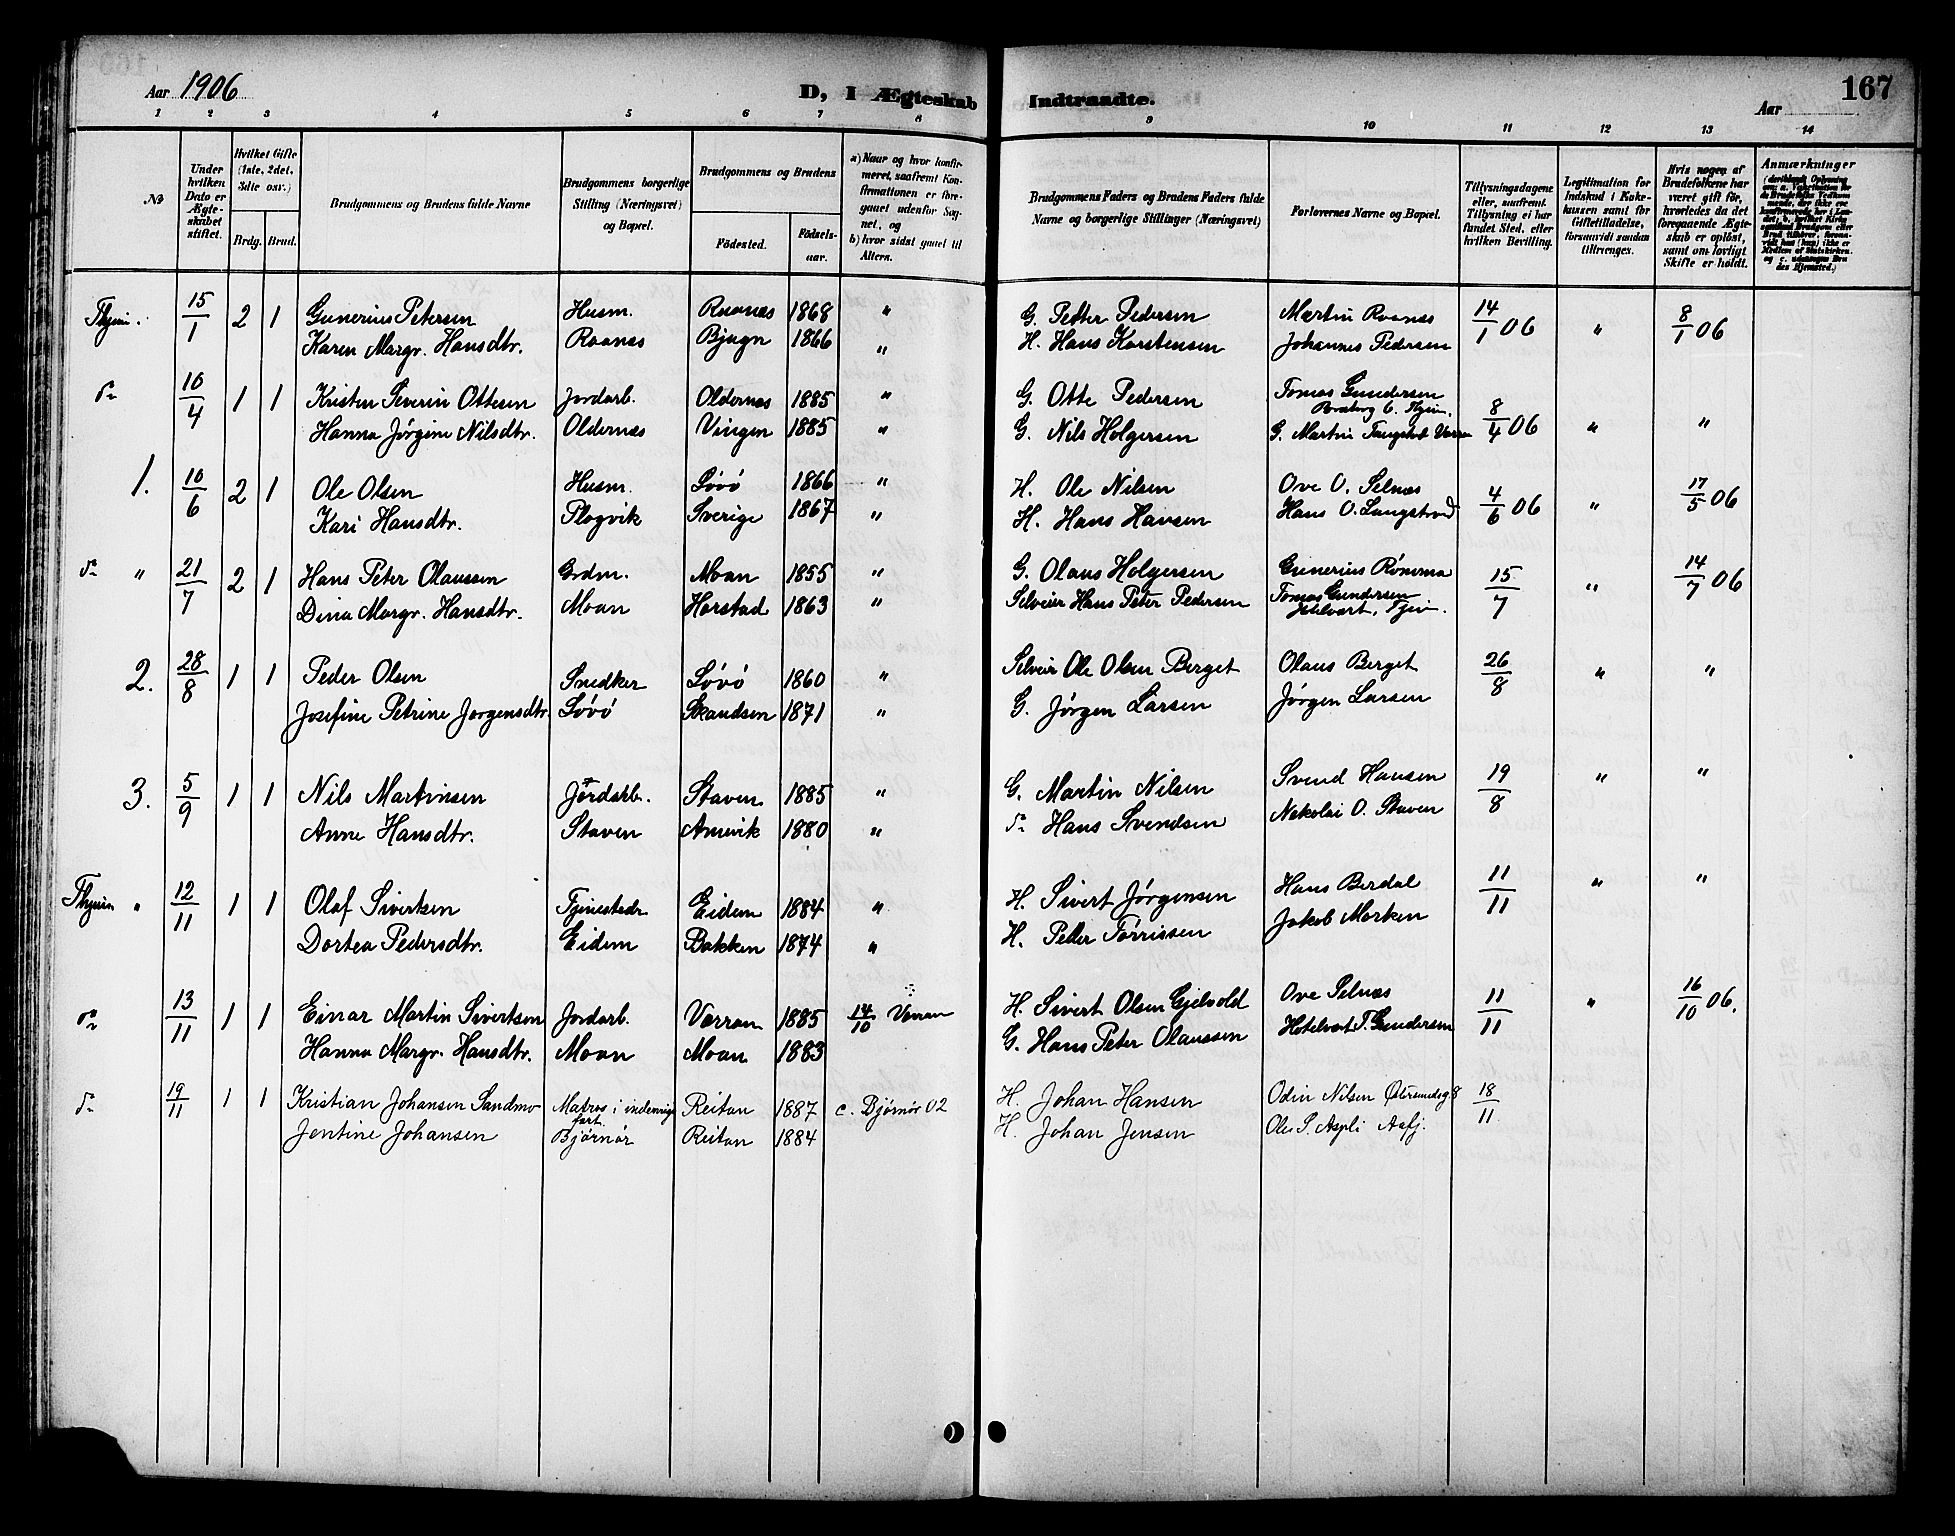 Aar 1906
D, I Ægteskab Indtraadte.
Aar
167
1 2 3 4 5 6 7 8 9 10 11 12 13 14
No
Under hvilken Dato er Ægteskabet stiftet.
Hvilket Gifte (1ste, 2det, 3die osv.)
Brdg. Brud.
Brudgommens og Brudens fulde Navne
Brudgommens borgerlige Stilling (Næringsvei) og Bopæl.
Brudgommens og Brudens
Födested. Födsels-aar.
a) Naar og hvor konfirmeret, saafremt Konfirmationen er foregaaet udenfor Sognet, og
b) hvor sidst gaaet til Alters.
Brudgommens Faders og Brudens Faders fulde Navne og borgerlige Stillinger (Næringsvei)
Forlovernes Navne og Bopæl.
Tillysningsdagene eller, saafremt Tillysning ei har fundet Sted, efter hvilken Bevilling.
Legitimation for Indskud i Kokkassen samt for Giftetilladelse, forsaavidt saadan tiltrænges.
Hvis nogen af Brudefolkene har været gift för, hvorledes da det foregaaende Ægteskab er oplöst, samt om lovligt Skifte er holdt.
Anmærkninger
15/1 2 1 Gunerius Petersen Husm. Raanæs 1868 " G. Petter Pedersen Martin Roanæs 14/1 06 " 8/1 06
Karen Margr. Hansdtr. Raanæs Bjugn 1866 " H. Hans Karstensen Johannes Pedersen
do 16/4 1 1 Kristen Severin Ottesen Jordarb. Oldernæs 1885 " G. Otte Pedersen Tomas Gundersen
8/4 06 " "
Hanna Jørgine Nilsdtr. Oldernæs Vingen 1885 " G. Nils Holgersen G. Martin
1. 10/6 2 1 Ole Olsen Husm. Løvø 1866 " H. Ole Nilsen Ove O. Selnæs 4/6 06 " 17/5 06
Kari Hansdtr. Plogvik Sverige 1867 " H. Hans Hansen Hans O. Langstrand
do " 21/7 2 1 Hans Peter Olaussen Grdm. Moan 1855 " G. Olaus Holgersen Gunerius Rømma 15/7 " 14/7 06
Dina Margr. Hansdtr. Moan Harstad 1863 " Selveier Hans Peter Pedersen Tomas Gundersen
2. 28/8 1 1 Peder Olsen Snedker Løvø 1860 " Selveier Ole Olsen Berget Olaus Berget 26/8 " "
Josefine Petrine Jørgensdtr. Løvø Skandsen 1871 " G. Jørgen Larsen Jørgen Larsen
3. 5/9 1 1 Nils Martinsen Jordarb. Staven 1885 " G. Martin Nilsen Svend Hansen 19/8 " "
Anne Hansdtr. Staven Arnevik 1880 " do Hans Svendsen Nekolai O. Staven
" 12/11 1 1 Olaf Sivertsen Tjenestedr. Eidem 1884 " H. Sivert Jørgensen Hans Berdal 11/11 " "
Dortea Pedersdtr. Eidem Bakken 1874 " H. Peder Tørrissen Jakob Morken
do 13/11 1 1 Einar Martin Sivertsen Jordarb. Varran 1885 14/10 Varran H. Sivert Olsen Gjelvold Ove Selnæs 11/11 " 16/10 06.
Hanna Margr. Hansdtr. Moan Moan 1883 G. Hans Peter Olaussen Hotelvært T. Gundersen
do 19/11 1 1 Kristian Johansen Sandmo Matros i indenrigs fart. Reitan 1887 c. Bjørnør 02 H. Johan Hansen Odin Nilsen Østersundsg 8 18/11
Jentine Johansen Bjørnør Reitan 1884 H. Johan Jensen Ole S. Aspli Aafj.